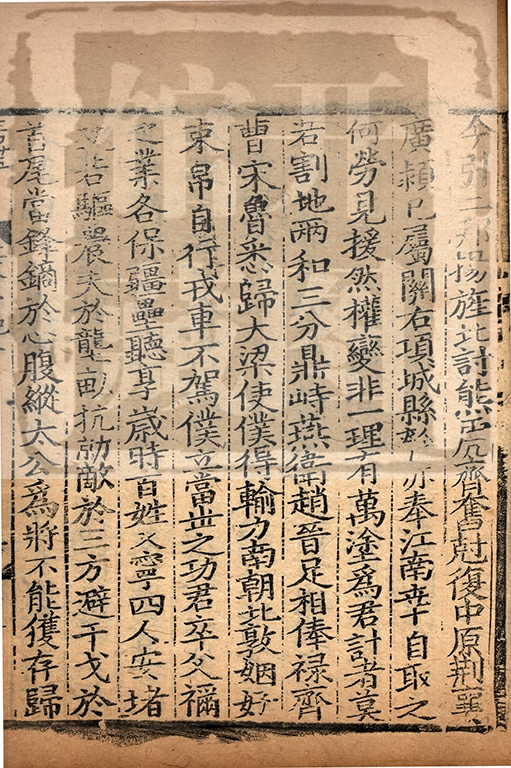 今引二邦揚旌北討熊虎齊奮尅復中原荊襄
廣潁已屬關右項城縣瓠亦奉江南幸自取之
何勞見援然權變非一理有萬塗爲君計者莫
若割地兩和三分鼎峙燕衛趙晉足相俸禄齊
曹宋魯悉歸大梁使僕得輸力南朝北敦姻好
束帛自行戎車不駕僕立當世之功君卒父禰
之業各保疆壘聽享歲時百姓乂寧四人安堵
孰若驅農夫於壟畝抗勍敵於三方避干戈於
首尾當鋒鏑於心腹縱太公爲將不能獲存歸